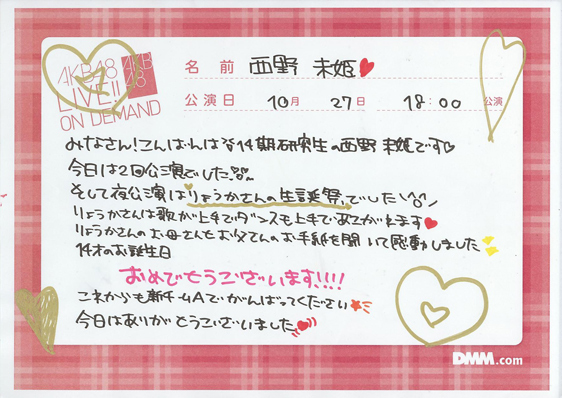 AKB48
LIVE!!
ON DEMAND
AKB
48
名前 西野 未姫
公演日 10月 27日 18:00 公演
みなさん!こんばんは 14期研究生の西野未姫です♡
今日は2回公演でした
そして夜公演はりょうかさんの生誕祭でした
りょうかさんは歌が上手でダンスも上手であこがれます♥
りょうかさんのお母さんとお父さんのお手紙を聞いて感動しました
14才のお誕生日
おめでとうございます!!!!
これからも新チームAでがんばってください
今日はありがとうございました
DMM.com